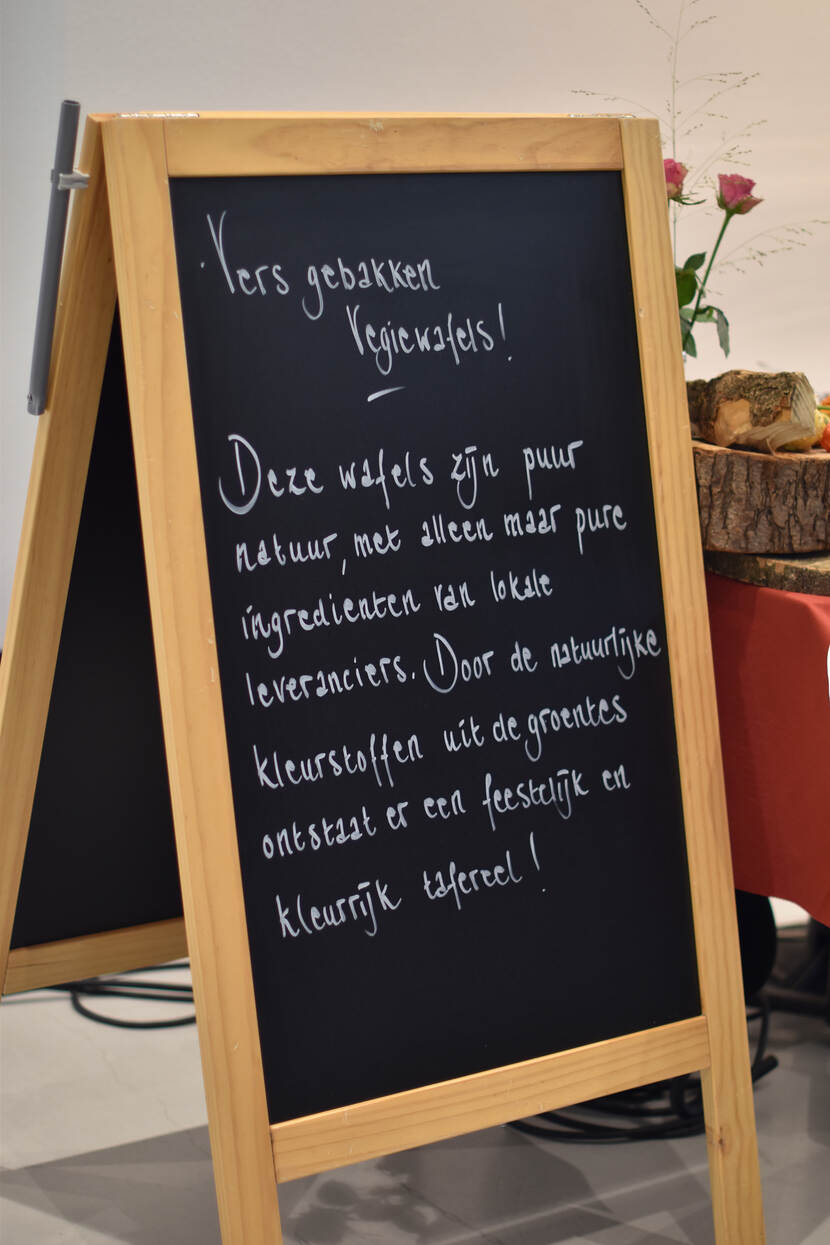 Vers gebakken
Vegiewafels!
Deze wafels zijn puur
natuur, met alleen maar pure
ingredienten van lokale
leveranciers. Door de natuurlijke
kleurstoffen uit de groentes
ontstaat er een feestelijk en
kleurrijk tafereel!